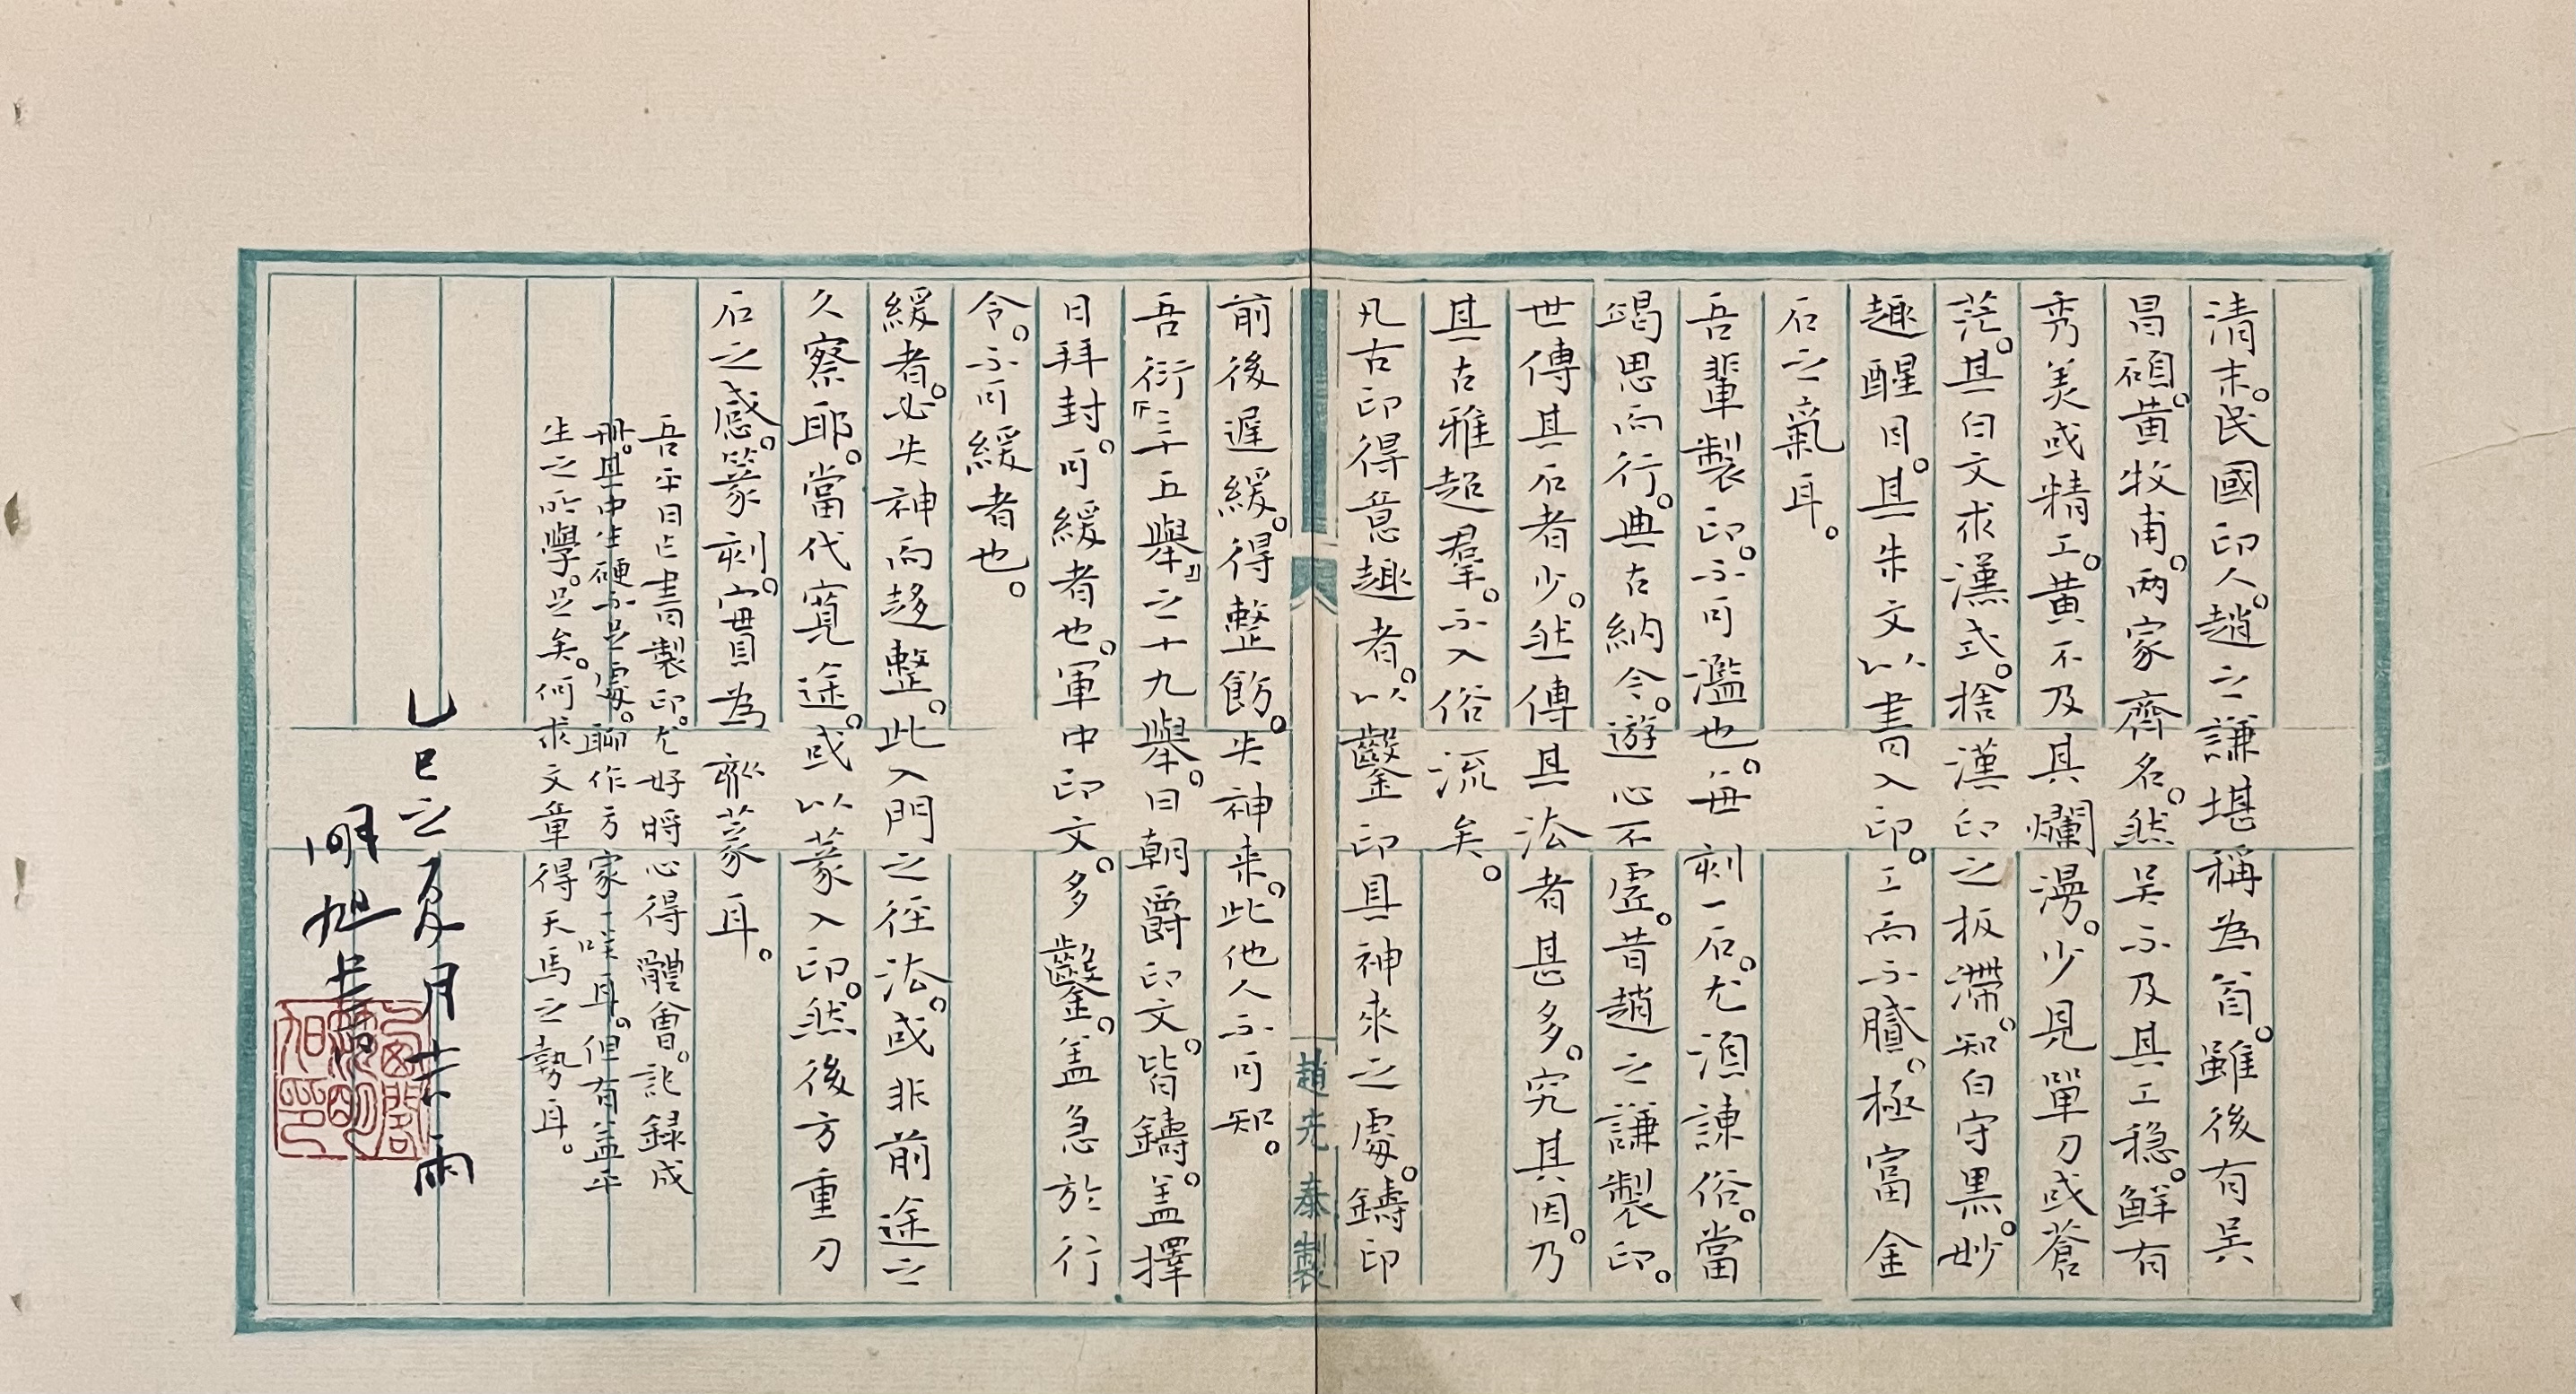 清末。民國印人。趙之謙堪稱為首。雖後有吳
昌碩。黃牧甫。兩家齊名。然吳不及其工稳。鮮有
秀美或精工。黃不及其爛漫。少見單刀或蒼
茫。其白文求漢式。捨漢印之板滯。知白守黑。妙
趣醒目。其朱文以書入印。工而不膩。極富金
石之氣耳。
吾輩製印。不可濫也。每刻一石。尤須諫俗。當
竭思而行。典古納今。遊心不虛。昔趙之謙製印。
世傳其石者少。然傳其法者甚多。究其因。乃
其古雅超羣。不入俗流矣。
凡古印得意趣者。以鑿印具神來之處。鑄印
趙先泰製
前後遲緩。得整飭。失神来。此他人不可知。
吾衍『三十五舉』之十九舉。曰朝爵印文。皆鑄。盖擇
日拜封。可緩者也。軍中印文。多鑿。盖急於行
令。不可緩者也。
緩者。必失神而趋整。此入門之径法。或非前途之
久察耶。當代寬途。或以篆入印。然後方重刀
石之感。篆刻。實為 篆耳。
吾平日上書製印。尤好將心得體會。記録成
冊。其中生硬不足處。聊作方家一哂耳。但有益平
生之所學。足矣。何求文章得天馬之勢耳。
乙巳之夏月苦雨
明旭上書